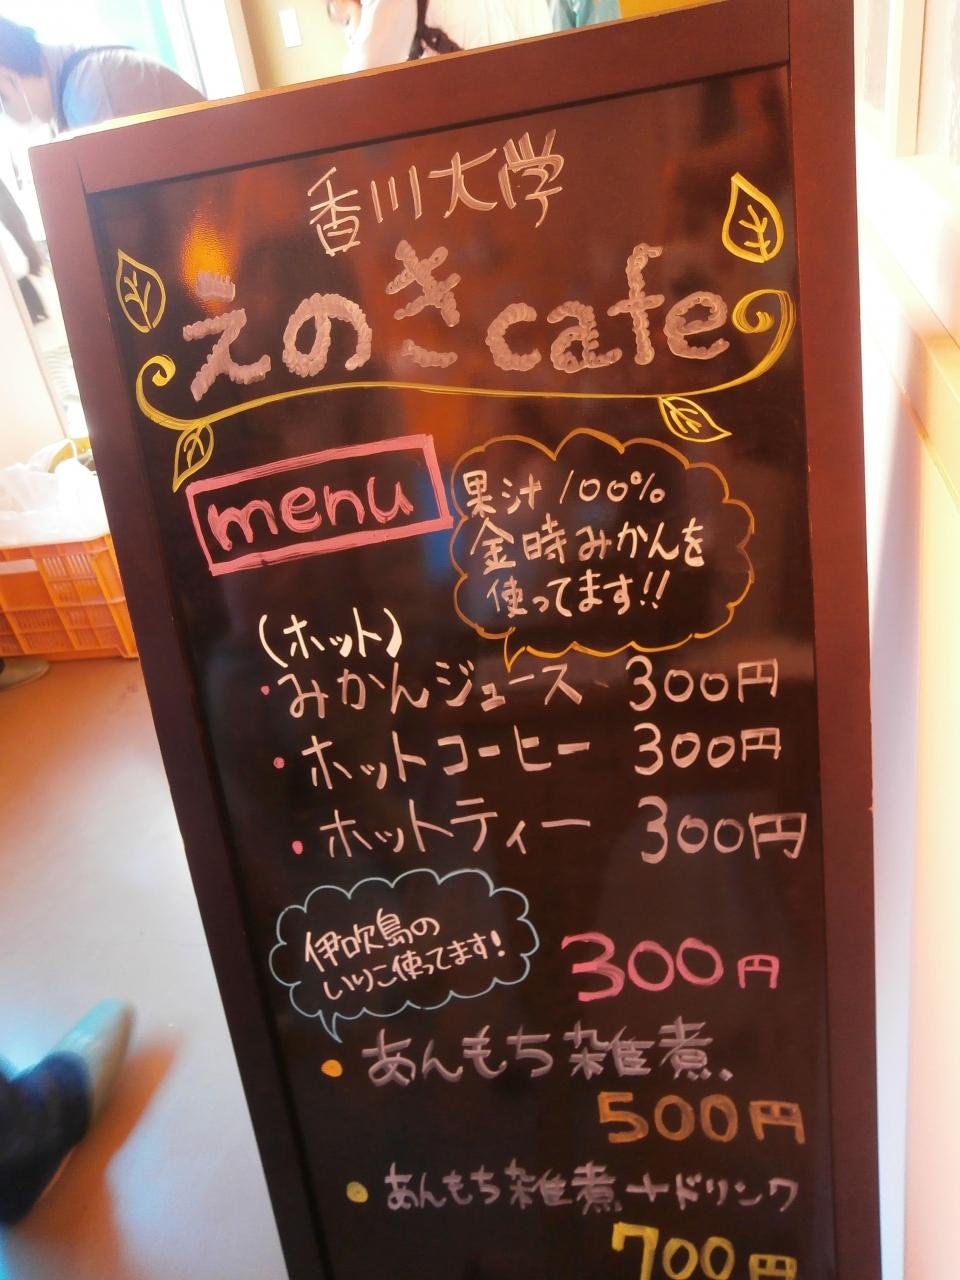 香川大学
えのきcafe
menu
果汁100%
金時みかんを
使ってます!!
(ホット)
・みかんジュース 300円
・ホットコーヒー 300円
・ホットティー 300円
伊吹島の
いりこ使ってます!
300円
・あんもち雑煮、
500円
・あんもち雑煮+ドリンク
700円